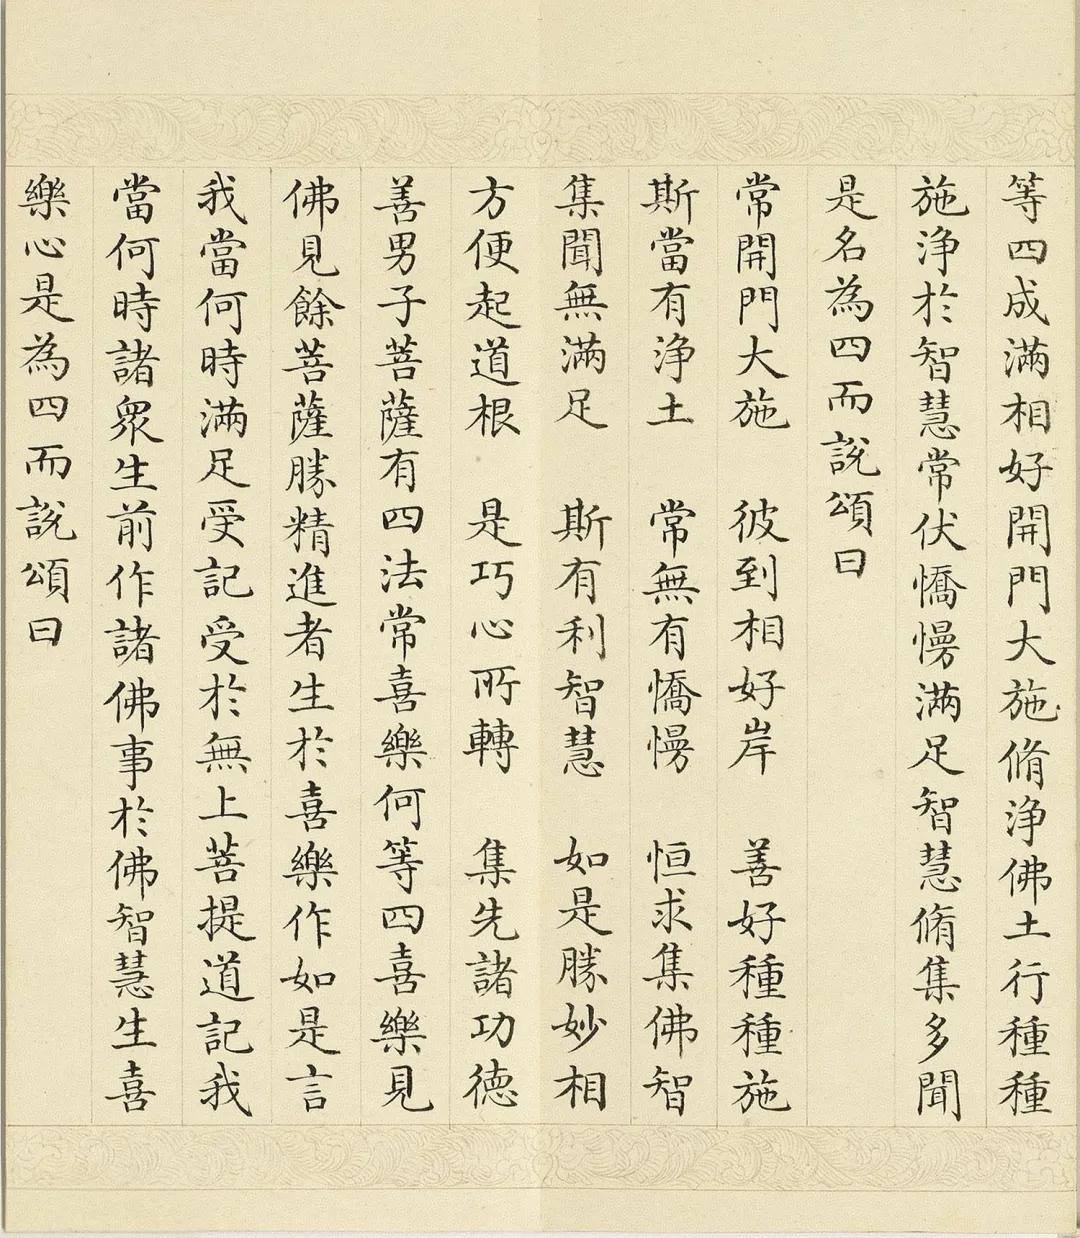 等四成滿相好開門大施脩淨佛土行種種
施淨於智慧常伏憍慢滿足智慧脩集多聞
是名為四而說頌曰
常開門大施　彼到相好岸　善好種種施
斯當有淨土　常無有憍慢　恒求集佛智
集聞無滿足　斯有利智慧　如是勝妙相
方便起道根　是巧心所轉　集先諸功德
善男子菩薩有四法常喜樂何等四喜樂見
佛見餘菩薩勝精進者生於喜樂作如是言
我當何時滿足受記受於無上菩提道記我
當何時諸眾生前作諸佛事於佛智慧生喜
樂心是為四而說頌曰